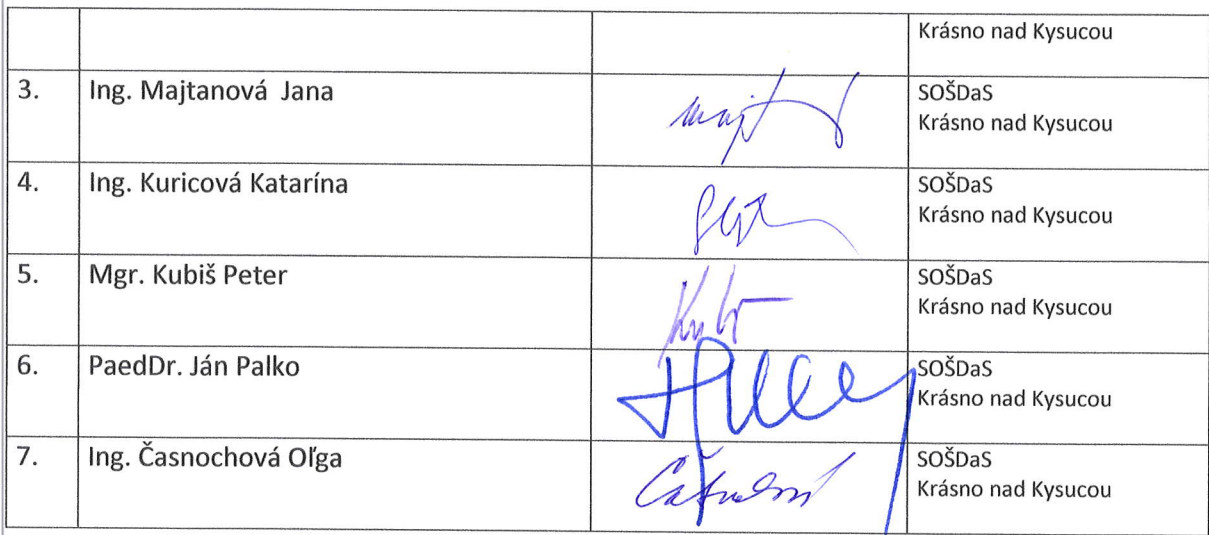 Krásno nad Kysucou
3. Ing. Majtanová Jana SOŠDaS
Krásno nad Kysucou
4. Ing. Kuricová Katarína SOŠDaS
Krásno nad Kysucou
5. Mgr. Kubiš Peter SOŠDaS
Krásno nad Kysucou
6. PaedDr. Ján Palko SOŠDaS
Krásno nad Kysucou
7. Ing. Časnochová Oľga SOŠDaS
Krásno nad Kysucou